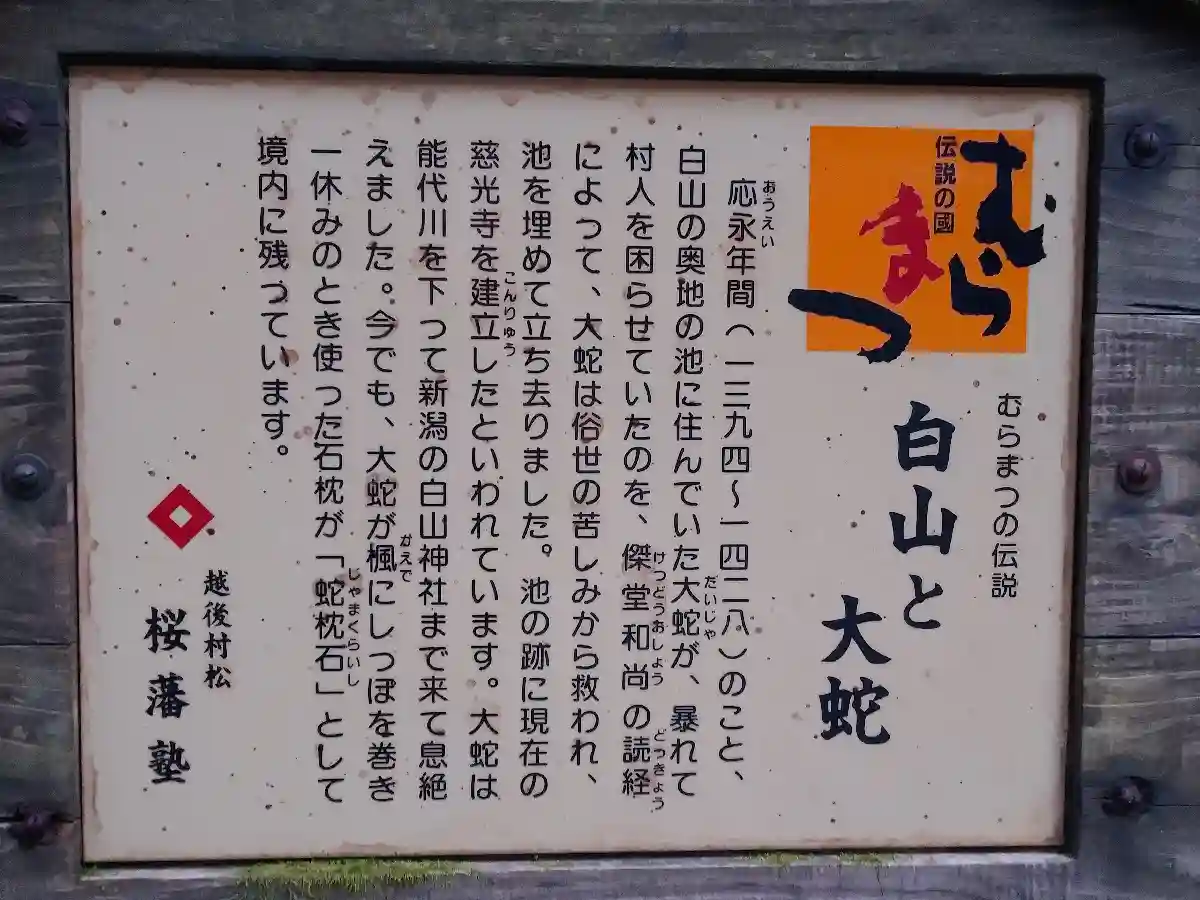 むらまつ
伝説の國
むらまつの伝説
白山と
大蛇
応永年間(一三九四〜一四二八)のこと、
おうえい
白山の奥地の池に住んでいた大蛇が、暴れて
だいじゃ
村人を困らせていたのを、傑堂和尚の読経
けつどうおしょう
どっきょう
によって、大蛇は俗世の苦しみから救われ、
池を埋めて立ち去りました。池の跡に現在の
慈光寺を建立したといわれています。大蛇は
こんりゅう
能代川を下って新潟の白山神社まで来て息絶
えました。今でも、大蛇が楓にしっぽを巻き
かえで
一休みのとき使った石枕が「蛇枕石」として
じゃまくらいし
境内に残っています。
越後村松
桜藩塾